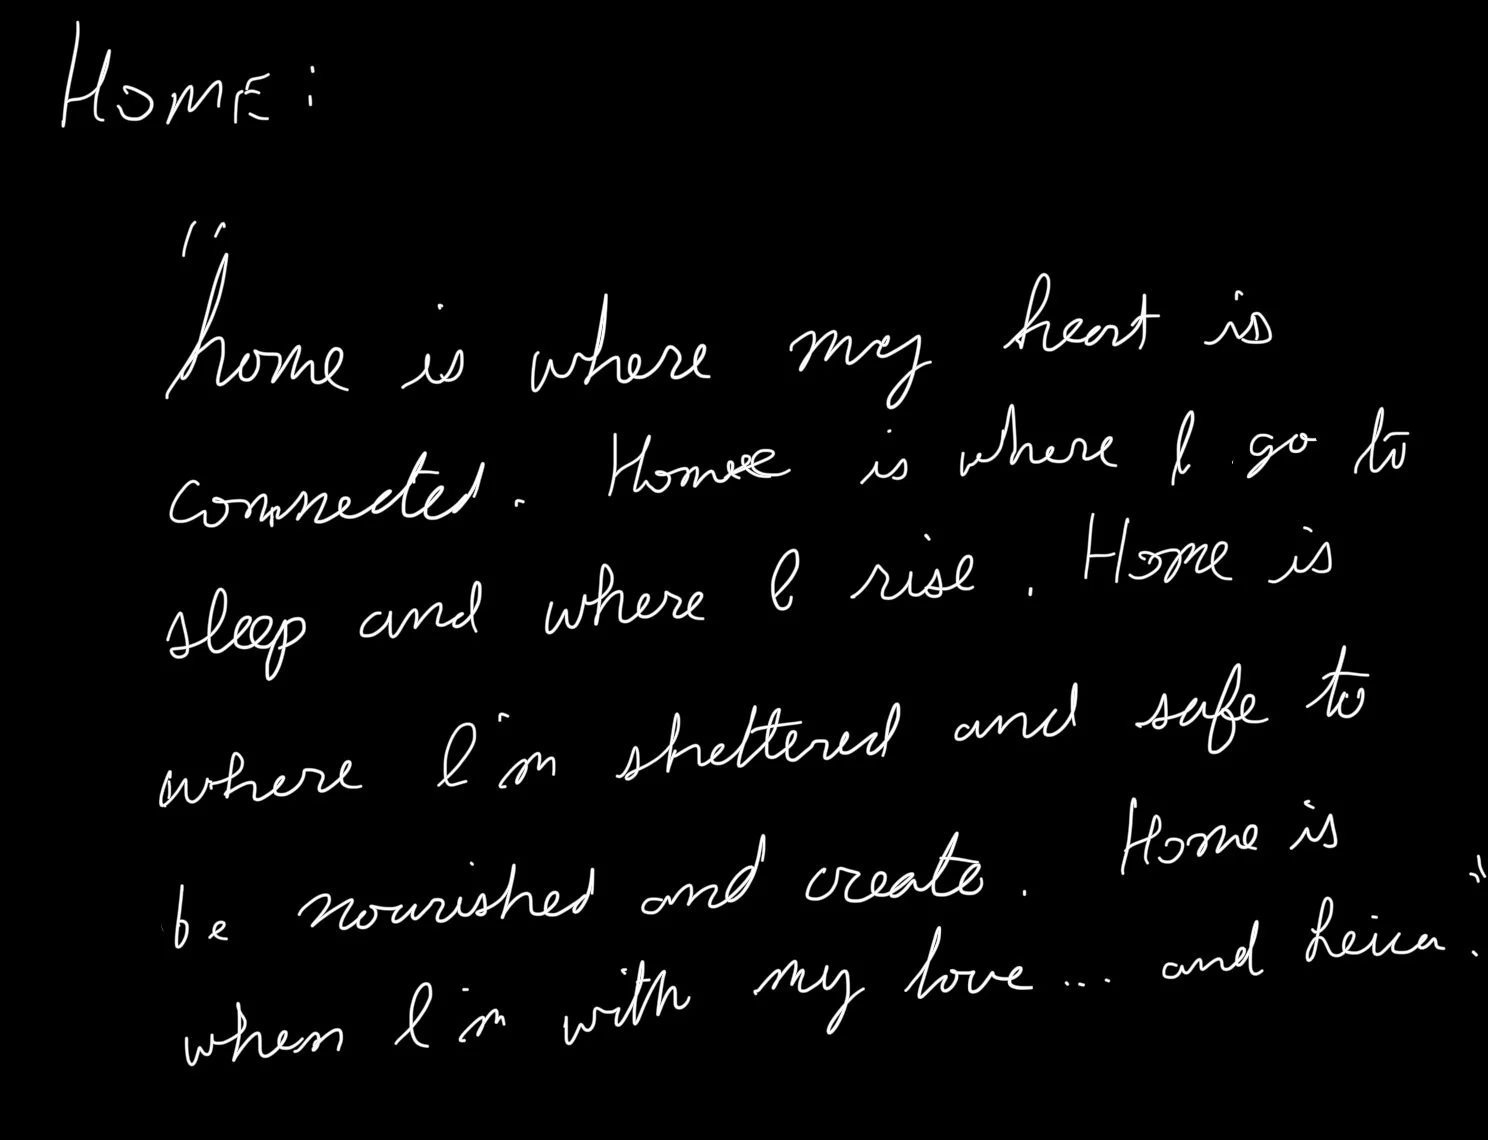 HOME:
"home is where my heart is
connected. Home is where I go to
sleep and where I rise. Home is
where I'm sheltered and safe to
be nourished and create. Home is
when I'm with my love... and Leica."